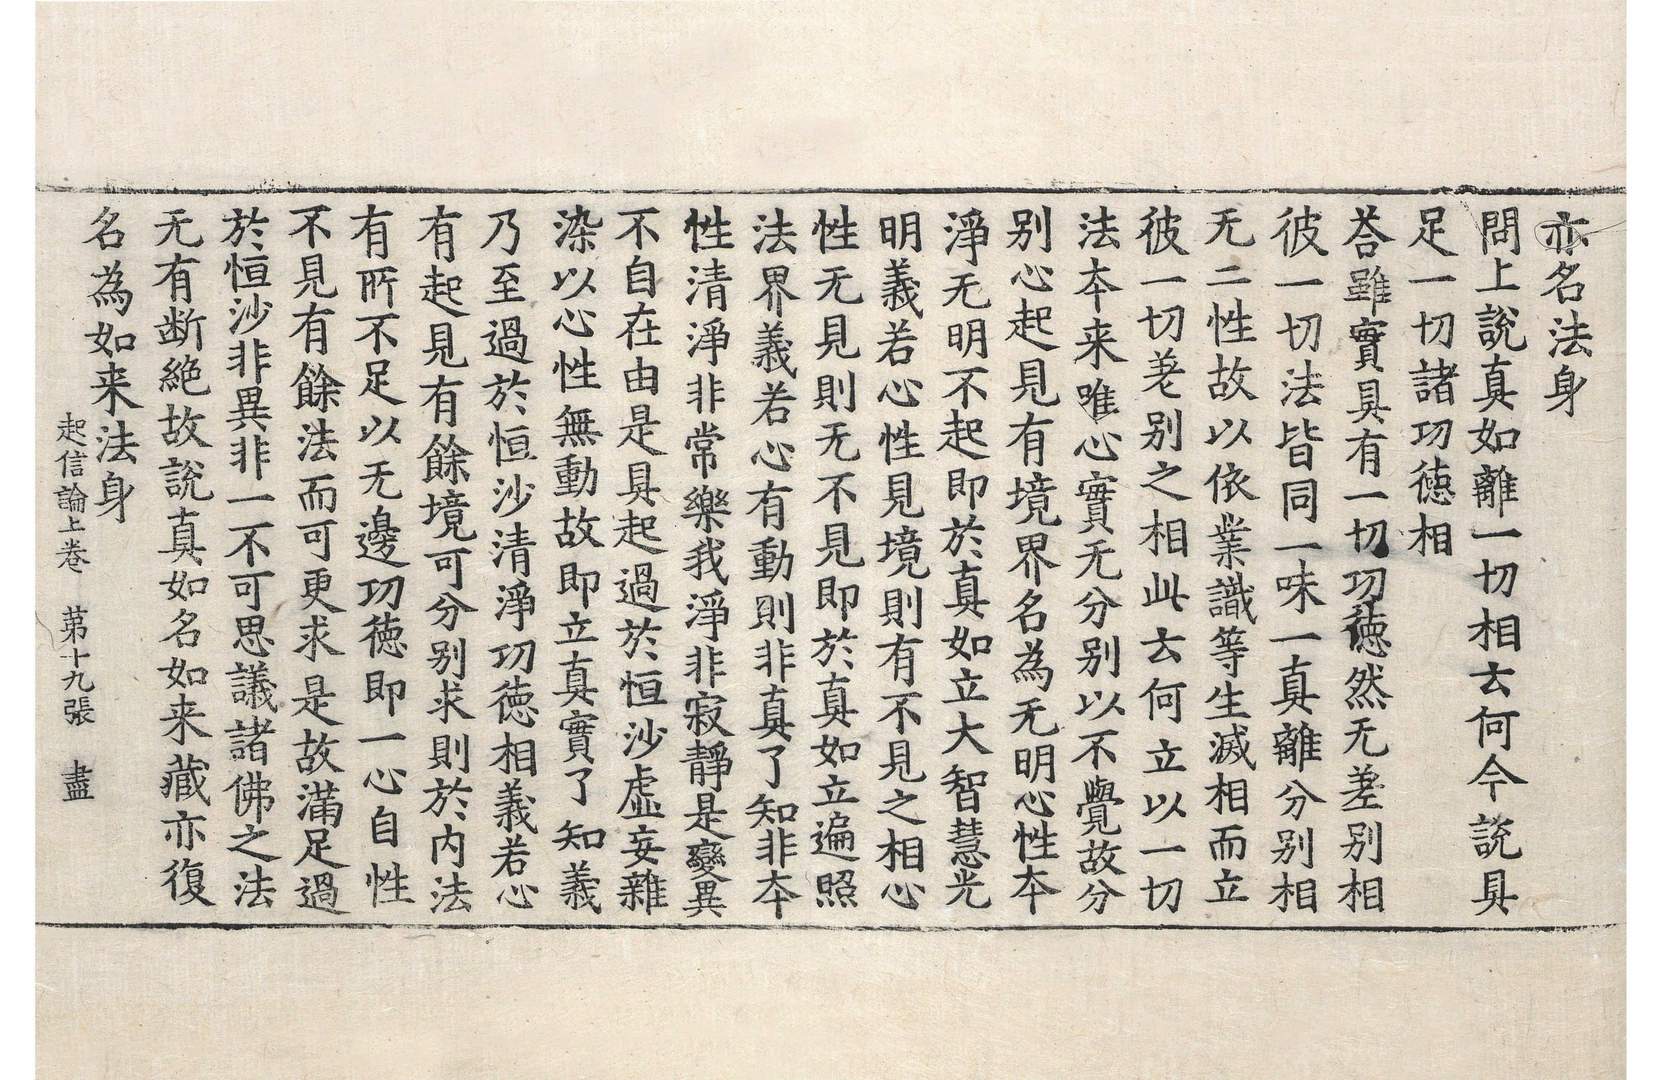 亦名法身
問上說真如離一切相云何今說具
足一切諸功德相
荅雖實具有一切功德然无差別相
彼一切法皆同一味一真離分別相
无二性故以依業識等生滅相而立
彼一切差別之相此云何立以一切
法本来唯心實无分別以不覺故分
別心起見有境界名為无明心性本
淨无明不起即於真如立大智慧光
明義若心性見境則有不見之相心
性无見則无不見即於真如立遍照
法界義若心有動則非真了知非本
性清淨非常樂我淨非寂靜是變異
不自在由是具起過於恒沙虛妄雜
染以心性無動故即立真實了知義
乃至過於恒沙清淨功德相義若心
有起見有餘境可分別求則於內法
有所不足以无邊功德即一心自性
不見有餘法而可更求是故滿足過
於恒沙非異非一不可思議諸佛之法
无有断絶故說真如名如来藏亦復
名為如来法身
起信論上卷 苐十九張 盡